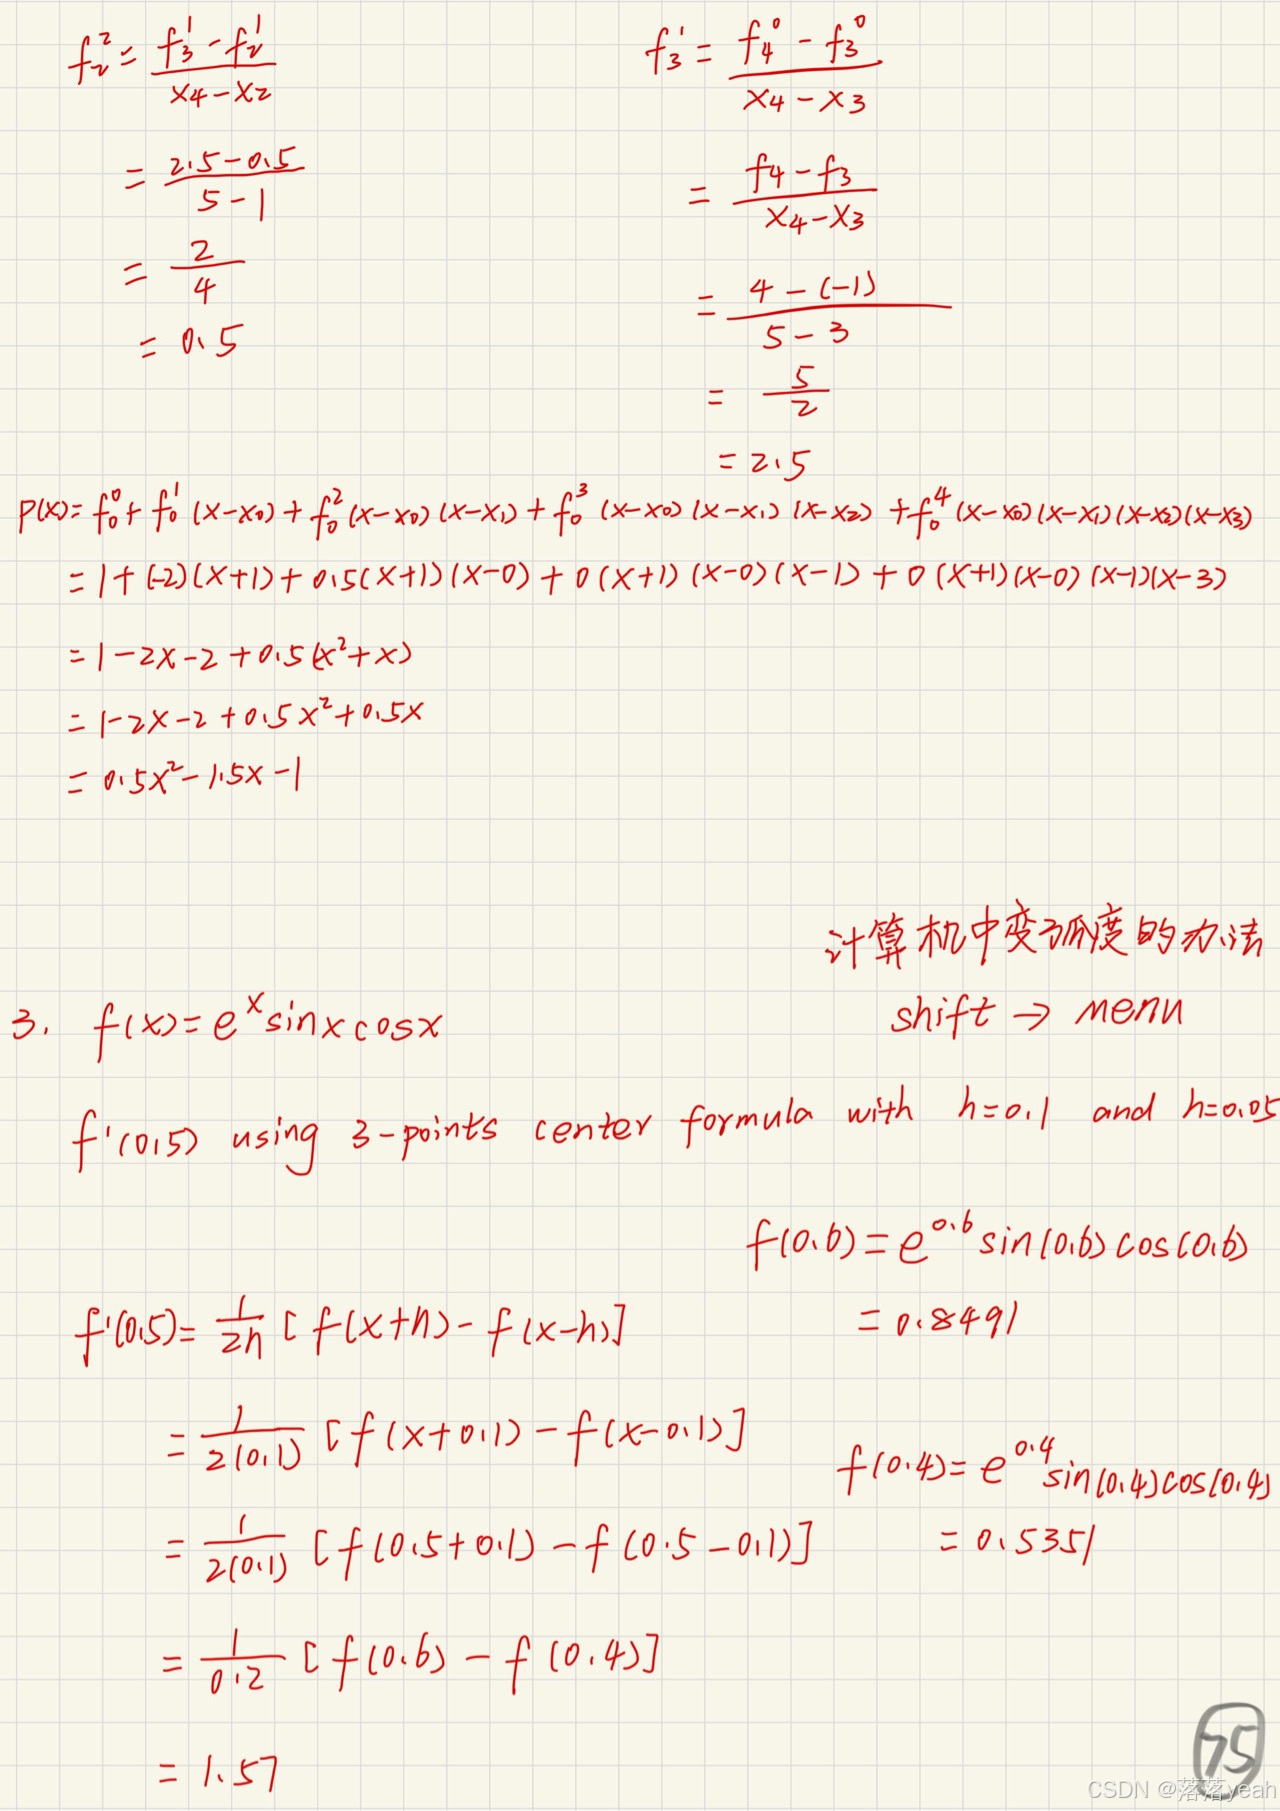 f₂² = (f₃¹ - f₂¹)/(x₄ - x₂)
= (2.5 - 0.5)/(5 - 1)
= 2/4
= 0.5
f₃¹ = (f₄⁰ - f₃⁰)/(x₄ - x₃)
= (f₄ - f₃)/(x₄ - x₃)
= (4 - (-1))/(5 - 3)
= 5/2
= 2.5
P(x) = f₀⁰ + f₀¹ (x-x₀) + f₀² (x-x₀) (x-x₁) + f₀³ (x-x₀) (x-x₁) (x-x₂) + f₀⁴ (x-x₀) (x-x₁) (x-x₂) (x-x₃)
= 1 + (-2) (x+1) + 0.5(x+1) (x-0) + 0 (x+1) (x-0) (x-1) + 0 (x+1) (x-0) (x-1) (x-3)
= 1 - 2x - 2 + 0.5(x² + x)
= 1 - 2x - 2 + 0.5x² + 0.5x
= 0.5x² - 1.5x - 1
计算机中变弧度的办法
shift → menu
3. f(x) = eˣ sinx cosx
f'(0.5) using 3-points center formula with h=0.1 and h=0.05
f'(0.5) = 1/2h [ f(x+h) - f(x-h)]
= 1/2(0.1) [ f(x+0.1) - f(x-0.1)]
= 1/2(0.1) [ f(0.5+0.1) - f(0.5-0.1)]
= 1/0.2 [ f(0.6) - f(0.4)]
= 1.57
f(0.6) = e^0.6 sin(0.6) cos(0.6)
= 0.8491
f(0.4) = e^0.4 sin(0.4) cos(0.4)
= 0.5351
75
CSDN @落落yeah